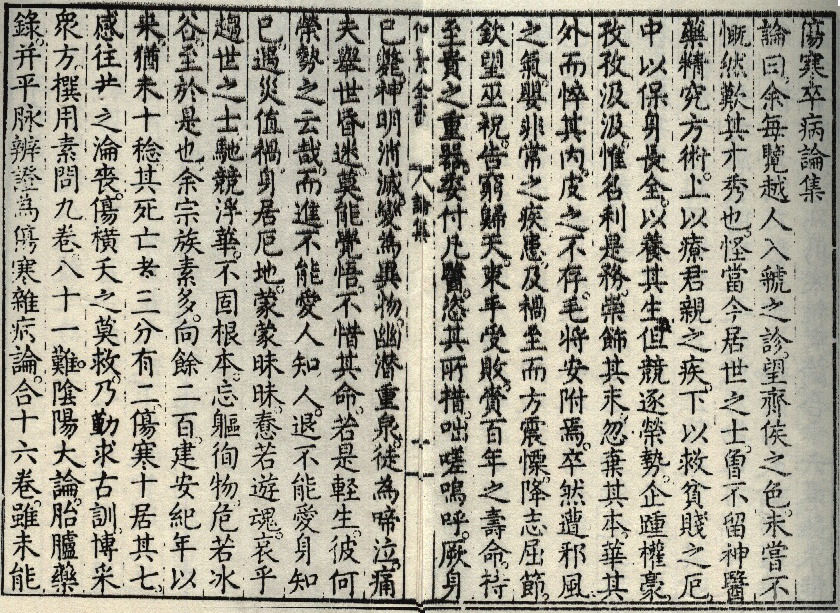 傷寒卒病論集
論曰余每覽越人入虢之診望齊侯之色未嘗不
慨然歎其才秀也怪當今居世之士曾不留神醫
藥精究方術上以療君親之疾下以救貧賤之厄
中以保身長全以養其生但競逐榮勢企踵權豪
孜孜汲汲惟名利是務崇飾其末忽棄其本華其
外而悴其內皮之不存毛將安附焉卒然遭邪風
之氣嬰非常之疾患及禍至而方震慄降志屈節
欽望巫祝告窮歸天束手受敗賷百年之壽命持
至貴之重器委付凡醫恣其所措咄嗟嗚呼厥身
已斃神明消滅變為異物幽潛重泉徒為啼泣痛
夫舉世昏迷莫能覺悟不惜其命若是輕生彼何
榮勢之云哉而進不能愛人知人退不能愛身知
已遇災值禍身居厄地蒙蒙昧昧憃若遊魂哀乎
趨世之士馳競浮華不固根本忘軀徇物危若冰
谷至於是也余宗族素多向餘二百建安紀年以
來猶未十稔其死亡者三分有二傷寒十居其七
感往昔之淪喪傷橫夭之莫救乃勤求古訓博采
眾方撰用素問九卷八十一難陰陽大論胎臚藥
錄并平脉辨證為傷寒雜病論合十六卷雖未能